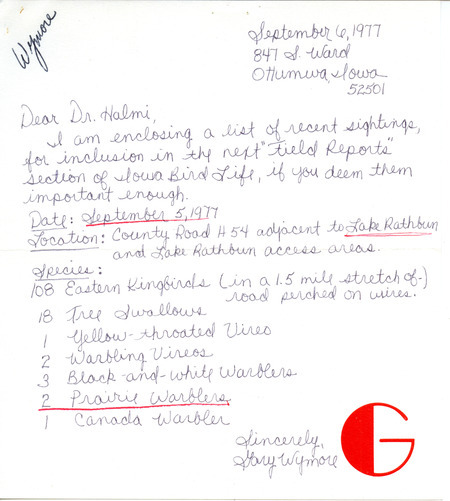 Wymore
September 6, 1977
847 S. Ward
Ottumwa, Iowa
52501
Dear Dr. Halmi,
I am enclosing a list of recent sightings,
for inclusion in the next "Field Reports"
section of Iowa Bird Life, if you deem them
important enough.
Date: September 5, 1977
Location: County Road H 54 adjacent to Lake Rathbun
and Lake Rathbun access areas.
Species:
108 Eastern Kingbirds (in a 1.5 mile stretch of)
road perched on wires.
18 Tree Swallows
1 Yellow-throated Vireo
2 Warbling Vireos
3 Black-and-white Warblers
2 Prairie Warblers
1 Canada Warbler
Sincerely,
Gary Wymore
G